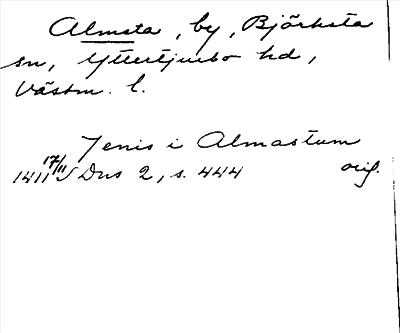 Almsta, by, Björksta
sn, Yttertjurbo hd,
Västm. l.
Jenis i Almastum
1411 17/11 SDns 2, s. 444 orig.